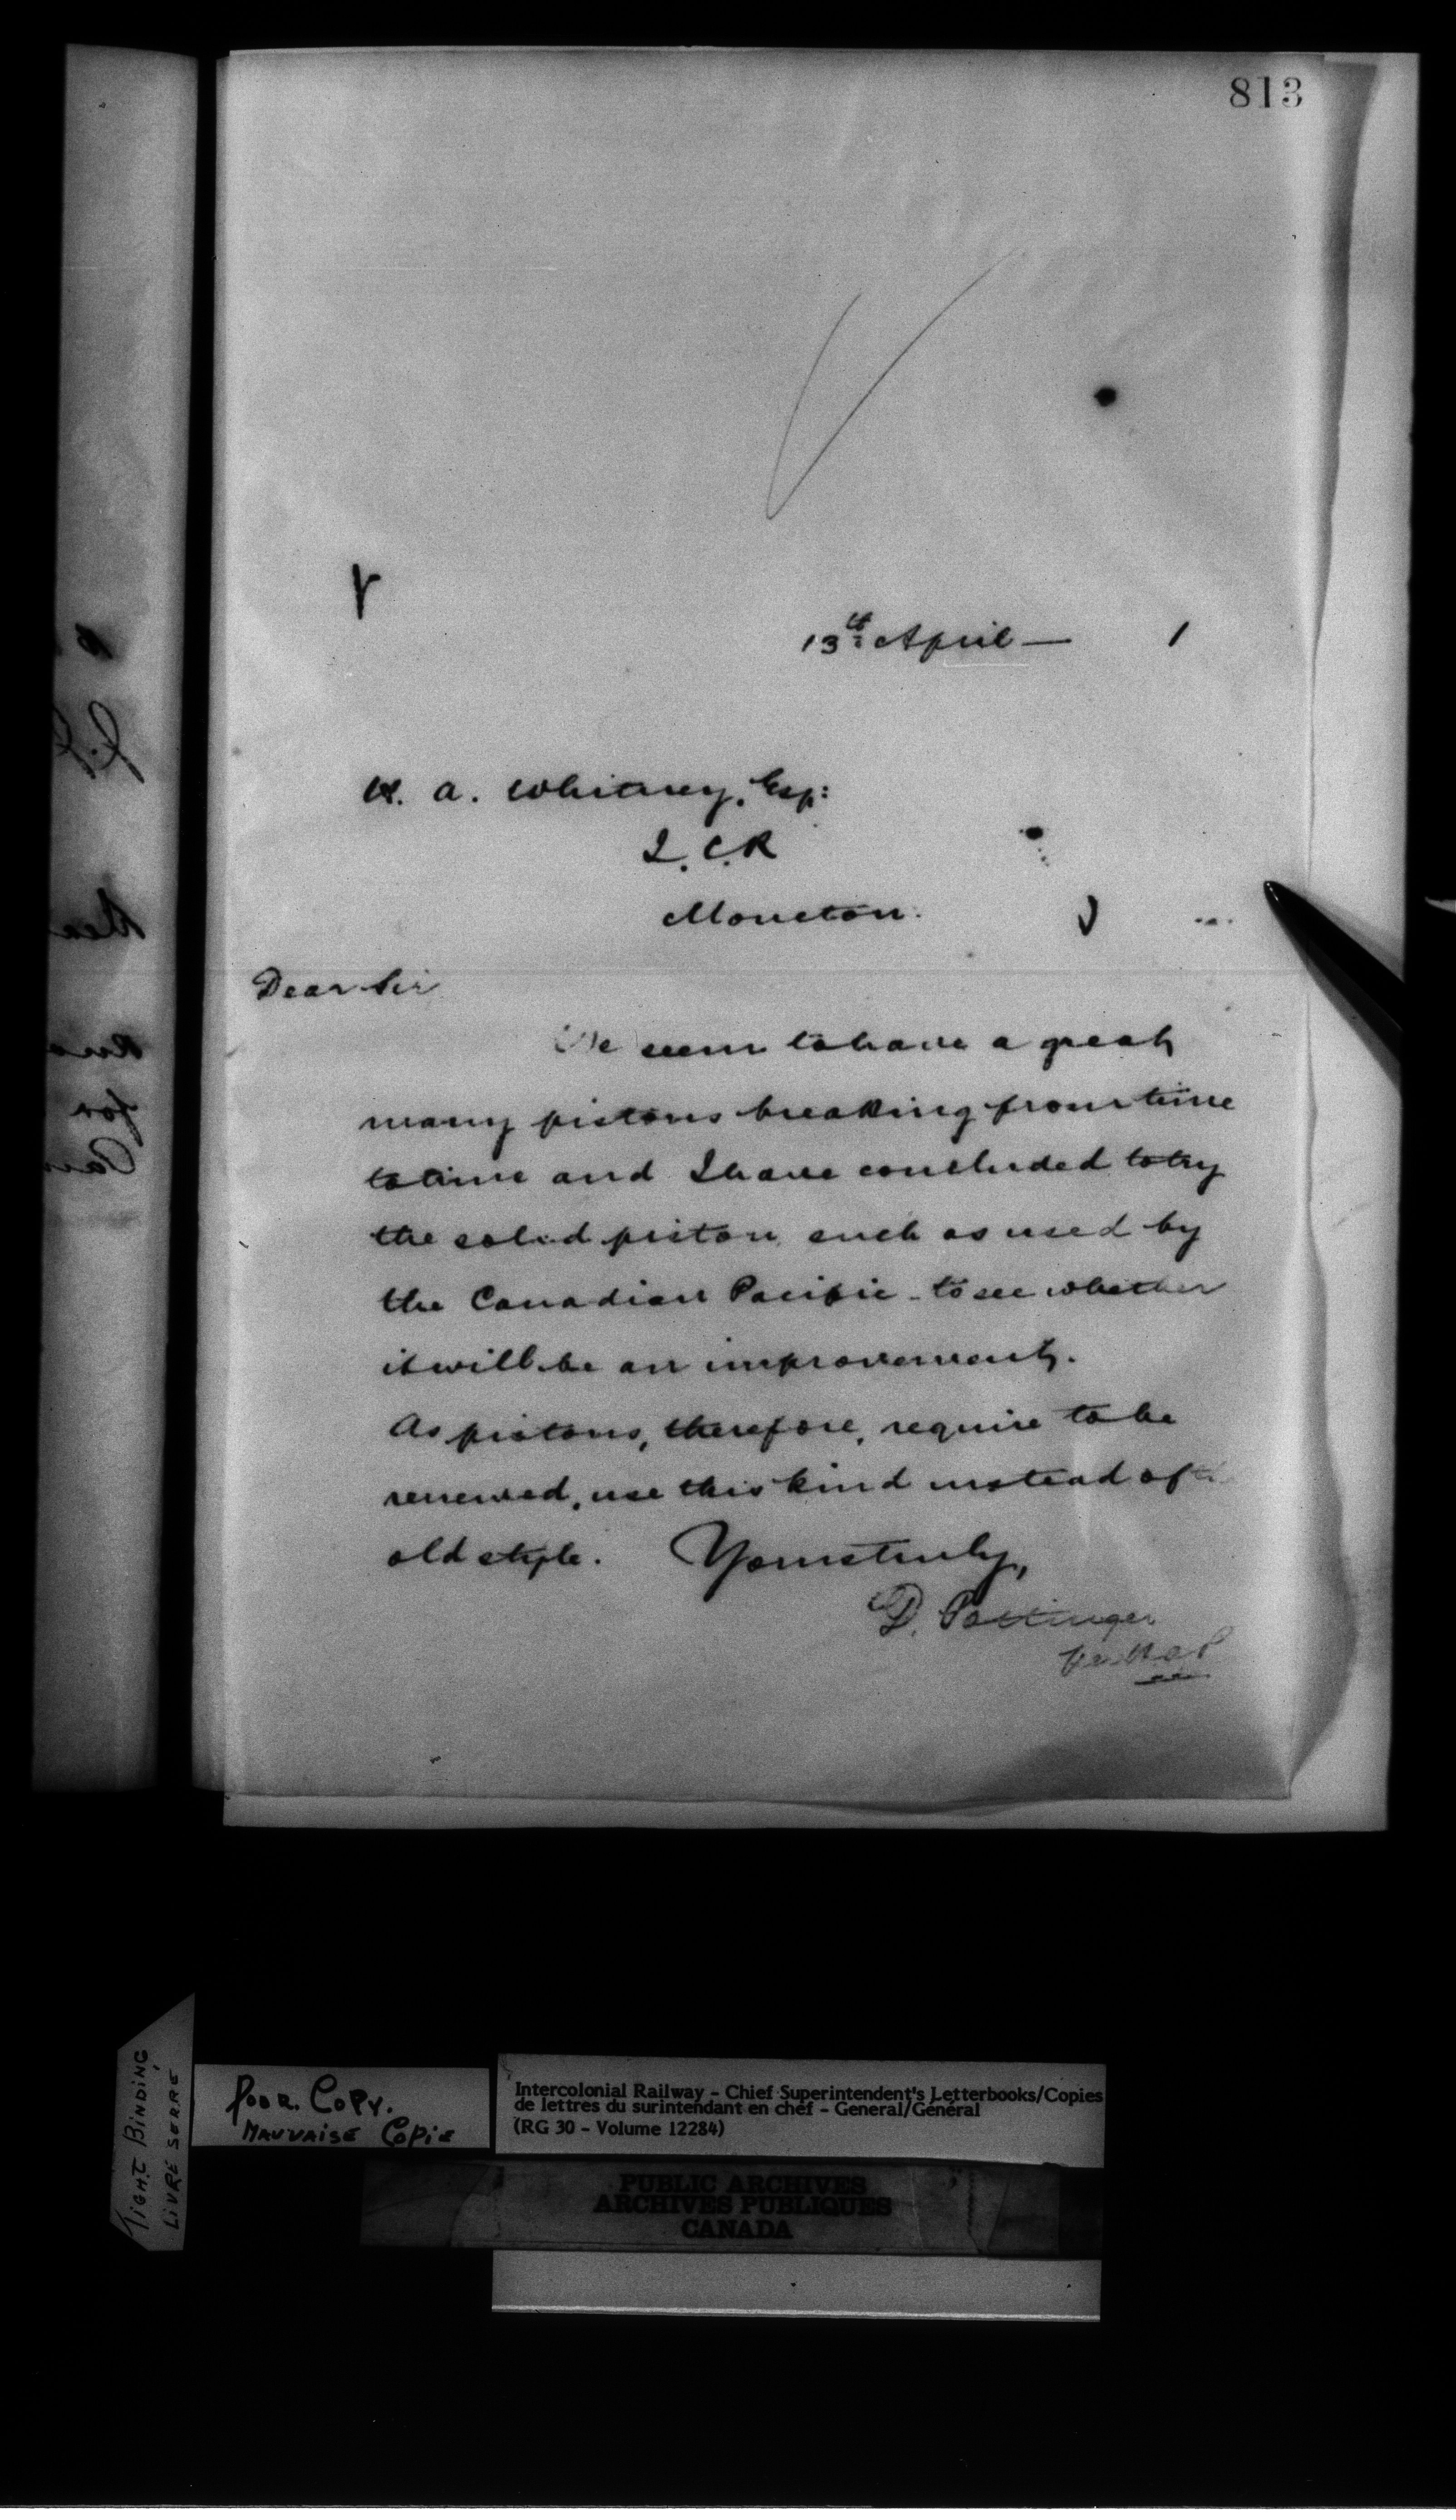 813
13th April — 1
H. A. Whitney, Esq:
I.C.R
Moncton.
Dear Sir
We seem to have a great
many pistons breaking from time
to time and I have concluded to try
the solid piston such as used by
the Canadian Pacific - to see whether
it will be an improvement.
As pistons, therefore, require to be
renewed, use this kind instead of the
old style. Yours truly,
D. Pottinger
TIGHT BINDING
LIVRE SERRÉ
POOR COPY.
MAUVAISE COPIE
Intercolonial Railway - Chief Superintendent's Letterbooks/Copies
de lettres du surintendant en chef - General/Général
(RG 30 - Volume 12284)
PUBLIC ARCHIVES
ARCHIVES PUBLIQUES
CANADA